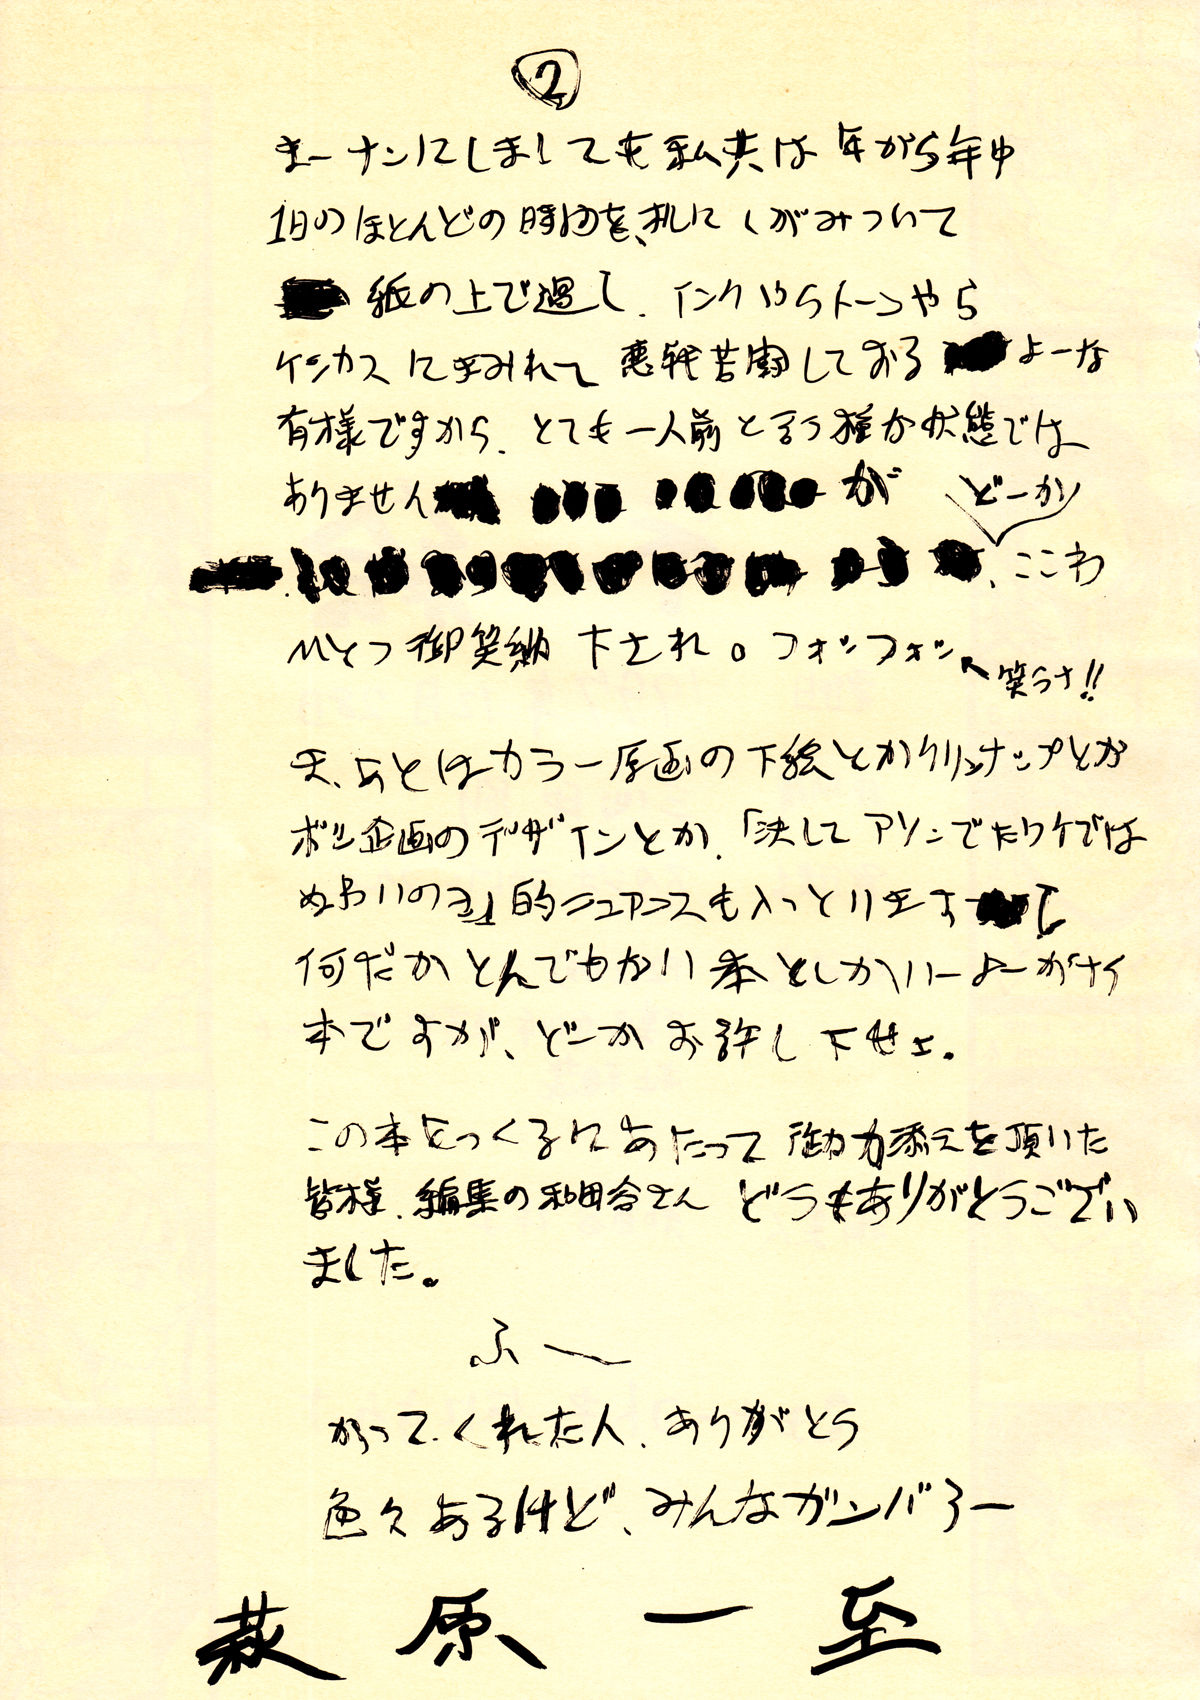 ②
まーナンにしましても私共は年がら年中
1日のほとんどの時間を、机にくがみついて
紙の上で過し、インクやらトーンやら
ケシカスにまみれて悪戦苦闘しておるよーな
有様ですから、とても一人前と言う種な状態では
ありませんが どーか
、ここわ
ひとつ御笑納下され。フォンフォン ←笑うな!!
ま、あとはカラー原画の下絵とかクリンナップとか
ボツ企画のデザインとか、「決してアソンでたワケでは
ぬぁいのョ」的ニュアンスも入っとりますし
何だかとんでもない本としかいーよーがナイ
本ですが、どーかお許し下せェ。
この本をつくるにあたって御力添えを頂いた
皆様、編集の和田谷さんどうもありがとうござい
ました。
ふー
かってくれた人、ありがとう
色々あるけど、みんなガンバろー
萩原一至